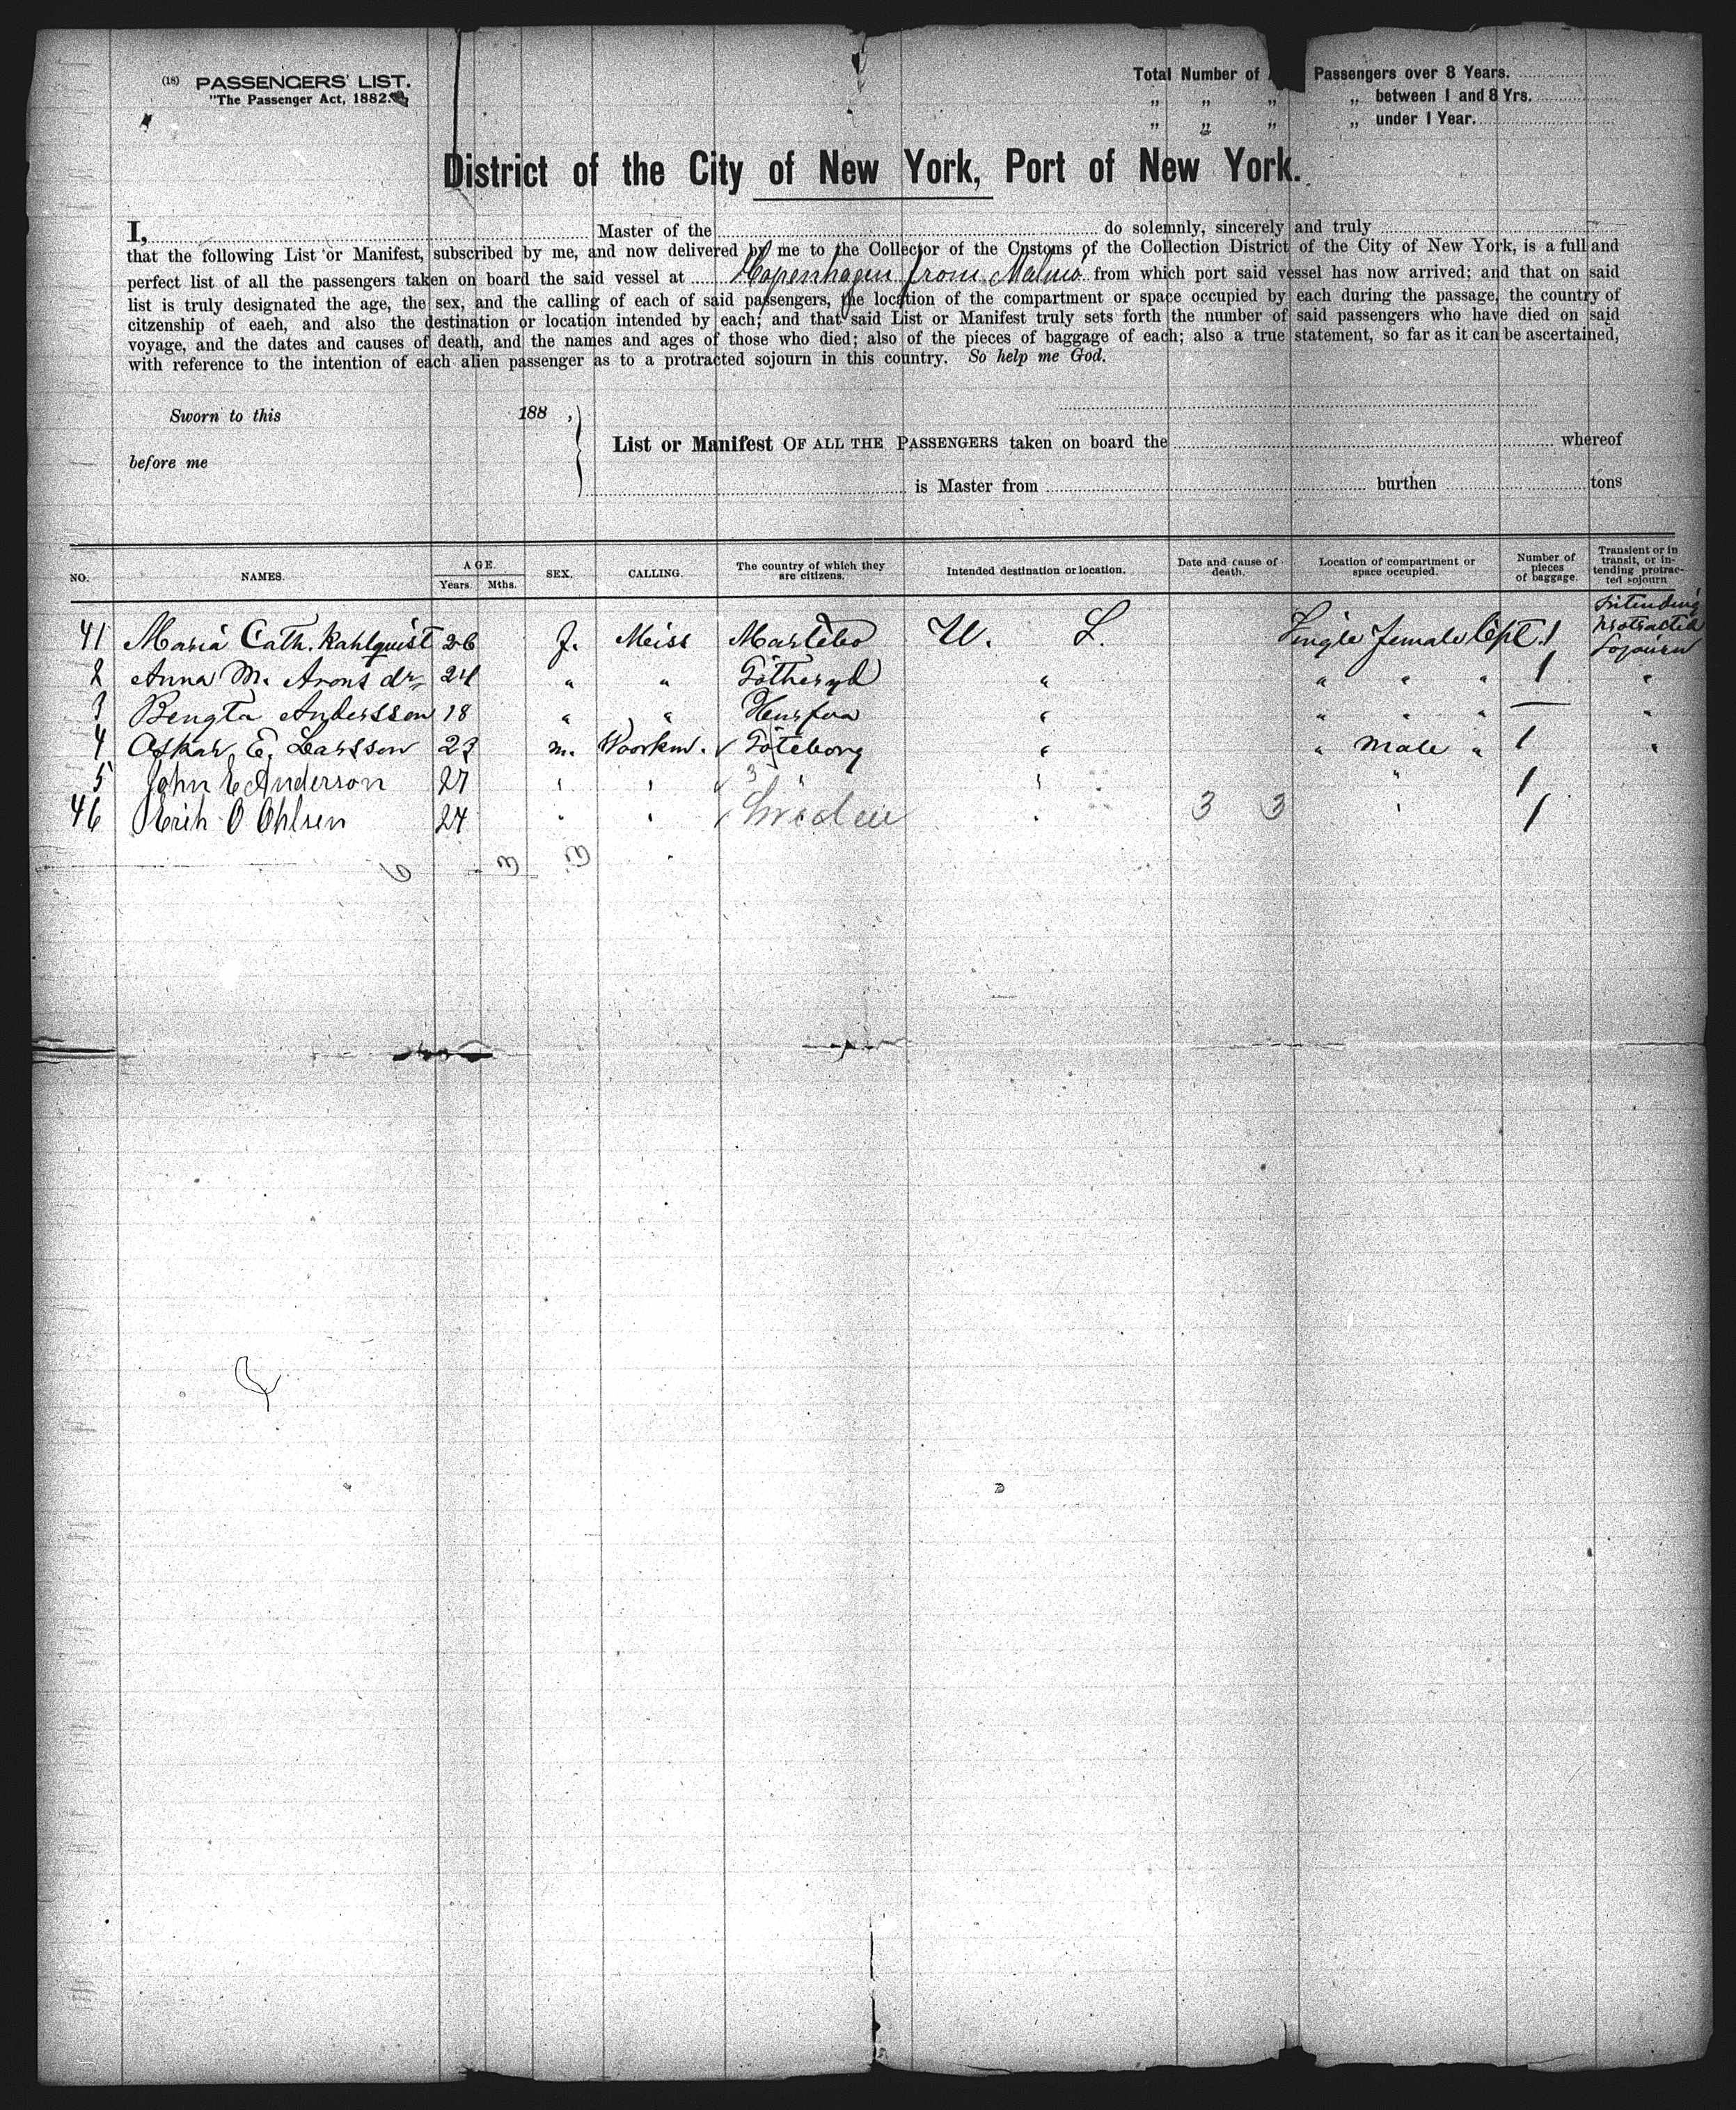 (18) PASSENGERS' LIST.
"The Passenger Act, 1882."
Total Number of Passengers over 8 Years.
„ „ „ „ between 1 and 8 Yrs.
„ „ „ „ under 1 Year.
District of the City of New York, Port of New York.
I, Master of the do solemnly, sincerely and truly
that the following List or Manifest, subscribed by me, and now delivered by me to the Collector of the Customs of the Collection District of the City of New York, is a full and
perfect list of all the passengers taken on board the said vessel at Kopenhagen from Malmö from which port said vessel has now arrived; and that on said
list is truly designated the age, the sex, and the calling of each of said passengers, the location of the compartment or space occupied by each during the passage, the country of
citzenship of eaeh, and also the destination or location intended by each; and that said List or Manifest truly sets forth the number of said passengers who have died on said
voyage, and the dates and causes of death, and the names and ages of those who died; also of the pieces of baggage of each; also a true statement, so far as it can be ascertained,
with reference to the intention of each alien passenger as to a protracted sojourn in this country. So help me God.
Sworn to this 188 ,
before me
List or Manifest OF ALL THE PASSENGERS taken on board the whereof
is Master from burthen tons
NO. NAMES. AGE. Years. Mths. SEX. CALLING. The country of which they are citizens. Intended destination or location. Date and cause of death. Location of compartment or space occupied. Number of pieces of baggage. Transient or in transit, or intending protracted sojourn
41 Maria Cath. Kahlquist 26 f. Meiss Martebo U. S. Single female Cpt. 1 Intending protracted Sojourn
2 Anna M. Arons dr 24 " " Götheryd " " " " 1 "
3 Bengta Andersson 18 " " " " " " — "
4 Oskar E. Larsson 23 m. Woorkm. Göteborg " " Male " 1 "
5 John E Anderson 27 " " 3 " " " 1
46 Erik O Ohlsen 24 " " Sweden " 3 3 " 1
6 3 3